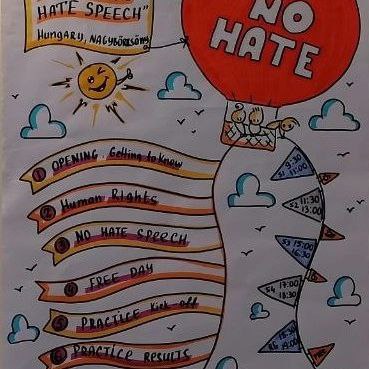 HATE SPEECH"
Hungary, NAGYBÖRZSÖNY
NO
HATE
① OPENING. Getting to Know
② Human Rights
③ NO HATE SPEECH
④ FREE DAY
⑤ PRACTICE Kick-off
⑥ PRACTICE RESULTS
S1 9:30
11:00
S2 11:30
13:00
S3 15:00
16:30
S4 17:00
18:30
RG 18:30
19:00